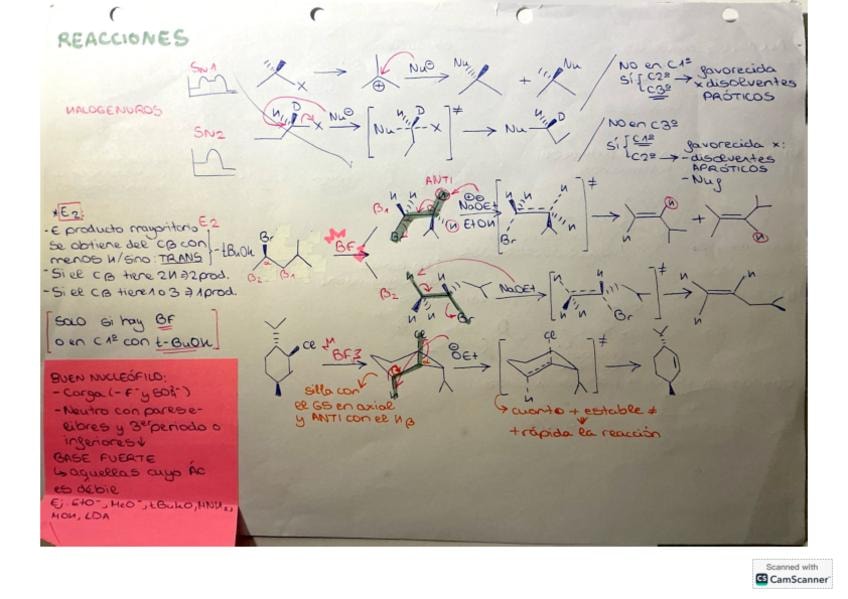 REACCIONES
SN1
X
Nu⊖
Nu
+
Nu
NO en C1º
SÍ C2º
C3º
favorecida
x disolventes
PRÓTICOS
HALOGENUROS
H D
X
Nu⊖
Nu D X ≠
Nu D
NO en C3º
SÍ C1º
C2º
favorecida x:
- disolventes
APRÓTICOS
- Nuf
SN2
ANTI
*E2
- E producto mayoritario
se obtiene del Cβ con
menos H/sino: TRANS
- Si el Cβ tiene 2H 2prod.
- Si el Cβ tiene 1 o 3 1prod.
E2
tBuOH
Br
α
β2 β1
BF
β1
H H
Br
NaOEt
EtOH
H H
Br
≠
H
H
+
H
β2
H
H H
Br
NaOEt
H
H H
Br
≠
H
H
[SOLO si hay BF
o en C1º con t-BuOH]
Cl
BF3
Cl
H
silla con
el GS en axial
y ANTI con el Hβ
⊖OEt
Cl
H
≠
cuanto + estable ≠
+ rápida la reacción
BUEN NUCLEÓFILO:
- Carga (- F⁻ y SO₄²⁻)
- Neutro con pares e-
libres y 3er periodo o
inferiores↓
BASE FUERTE
↳ aquellas cuyo Ác
es débil
Ej: EtO⁻, MeO⁻, tBuKO, HNH₂,
MOH, LDA
Scanned with
CS CamScanner